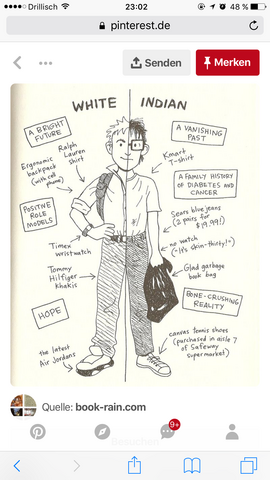 Drillisch
23:02
48 %
pinterest.de
Senden
Merken
WHITE INDIAN
A BRIGHT
FUTURE
Ralph
Lauren
shirt
Ergonomic
backpack
(with cell
phone)
POSITIVE
ROLE
MODELS
Timex
wristwatch
Tommy
Hilfiger
Khakis
HOPE
the latest
Air Jordans
A VANISHING
PAST
Kmart
T-shirt
A FAMILY HISTORY
OF DIABETES AND
CANCER
Sears blue jeans
(2 pairs for
$19.99!)
no watch
("It's skin-thirty!")
Glad garbage
book bag
BONE-CRUSHING
REALITY
canvas tennis shoes
(purchased in aisle 7
of Safeway
supermarket)
Quelle: book-rain.com
9+